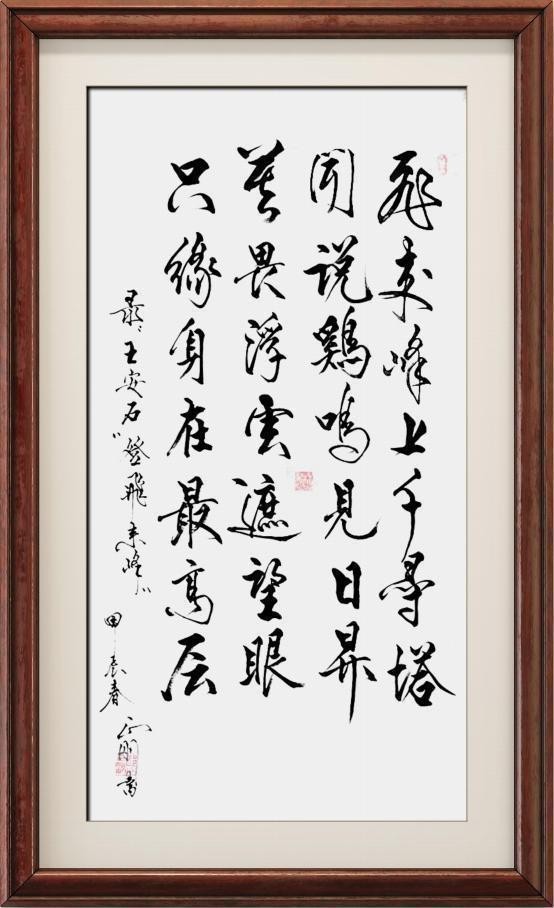 飛来峰上千尋塔
聞説鷄鳴見日昇
莫畏浮雲遮望眼
只緣身在最高层
录王安石“登飛来峰”
甲辰春 書